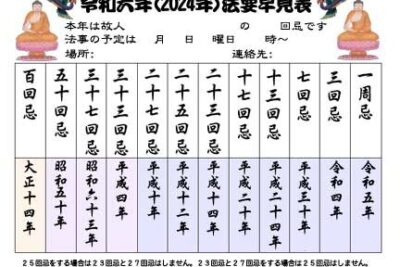 令和六年(2024年)法要早見表
本年は故人　　　の　　回忌です
法事の予定は　月　日　曜日　時〜
場所:　　　連絡先:
一周忌
令和五年
三回忌
令和四年
七回忌
平成三十年
十三回忌
平成二十四年
十七回忌
平成二十年
二十三回忌
平成十四年
二十五回忌
平成十二年
二十七回忌
平成十年
三十三回忌
平成四年
三十七回忌
昭和六十三年
五十回忌
昭和五十年
百回忌
大正十四年
２５回忌をする場合は２３回忌と２７回忌はしません。２３回忌と２７回忌をする場合は２５回忌はしません。